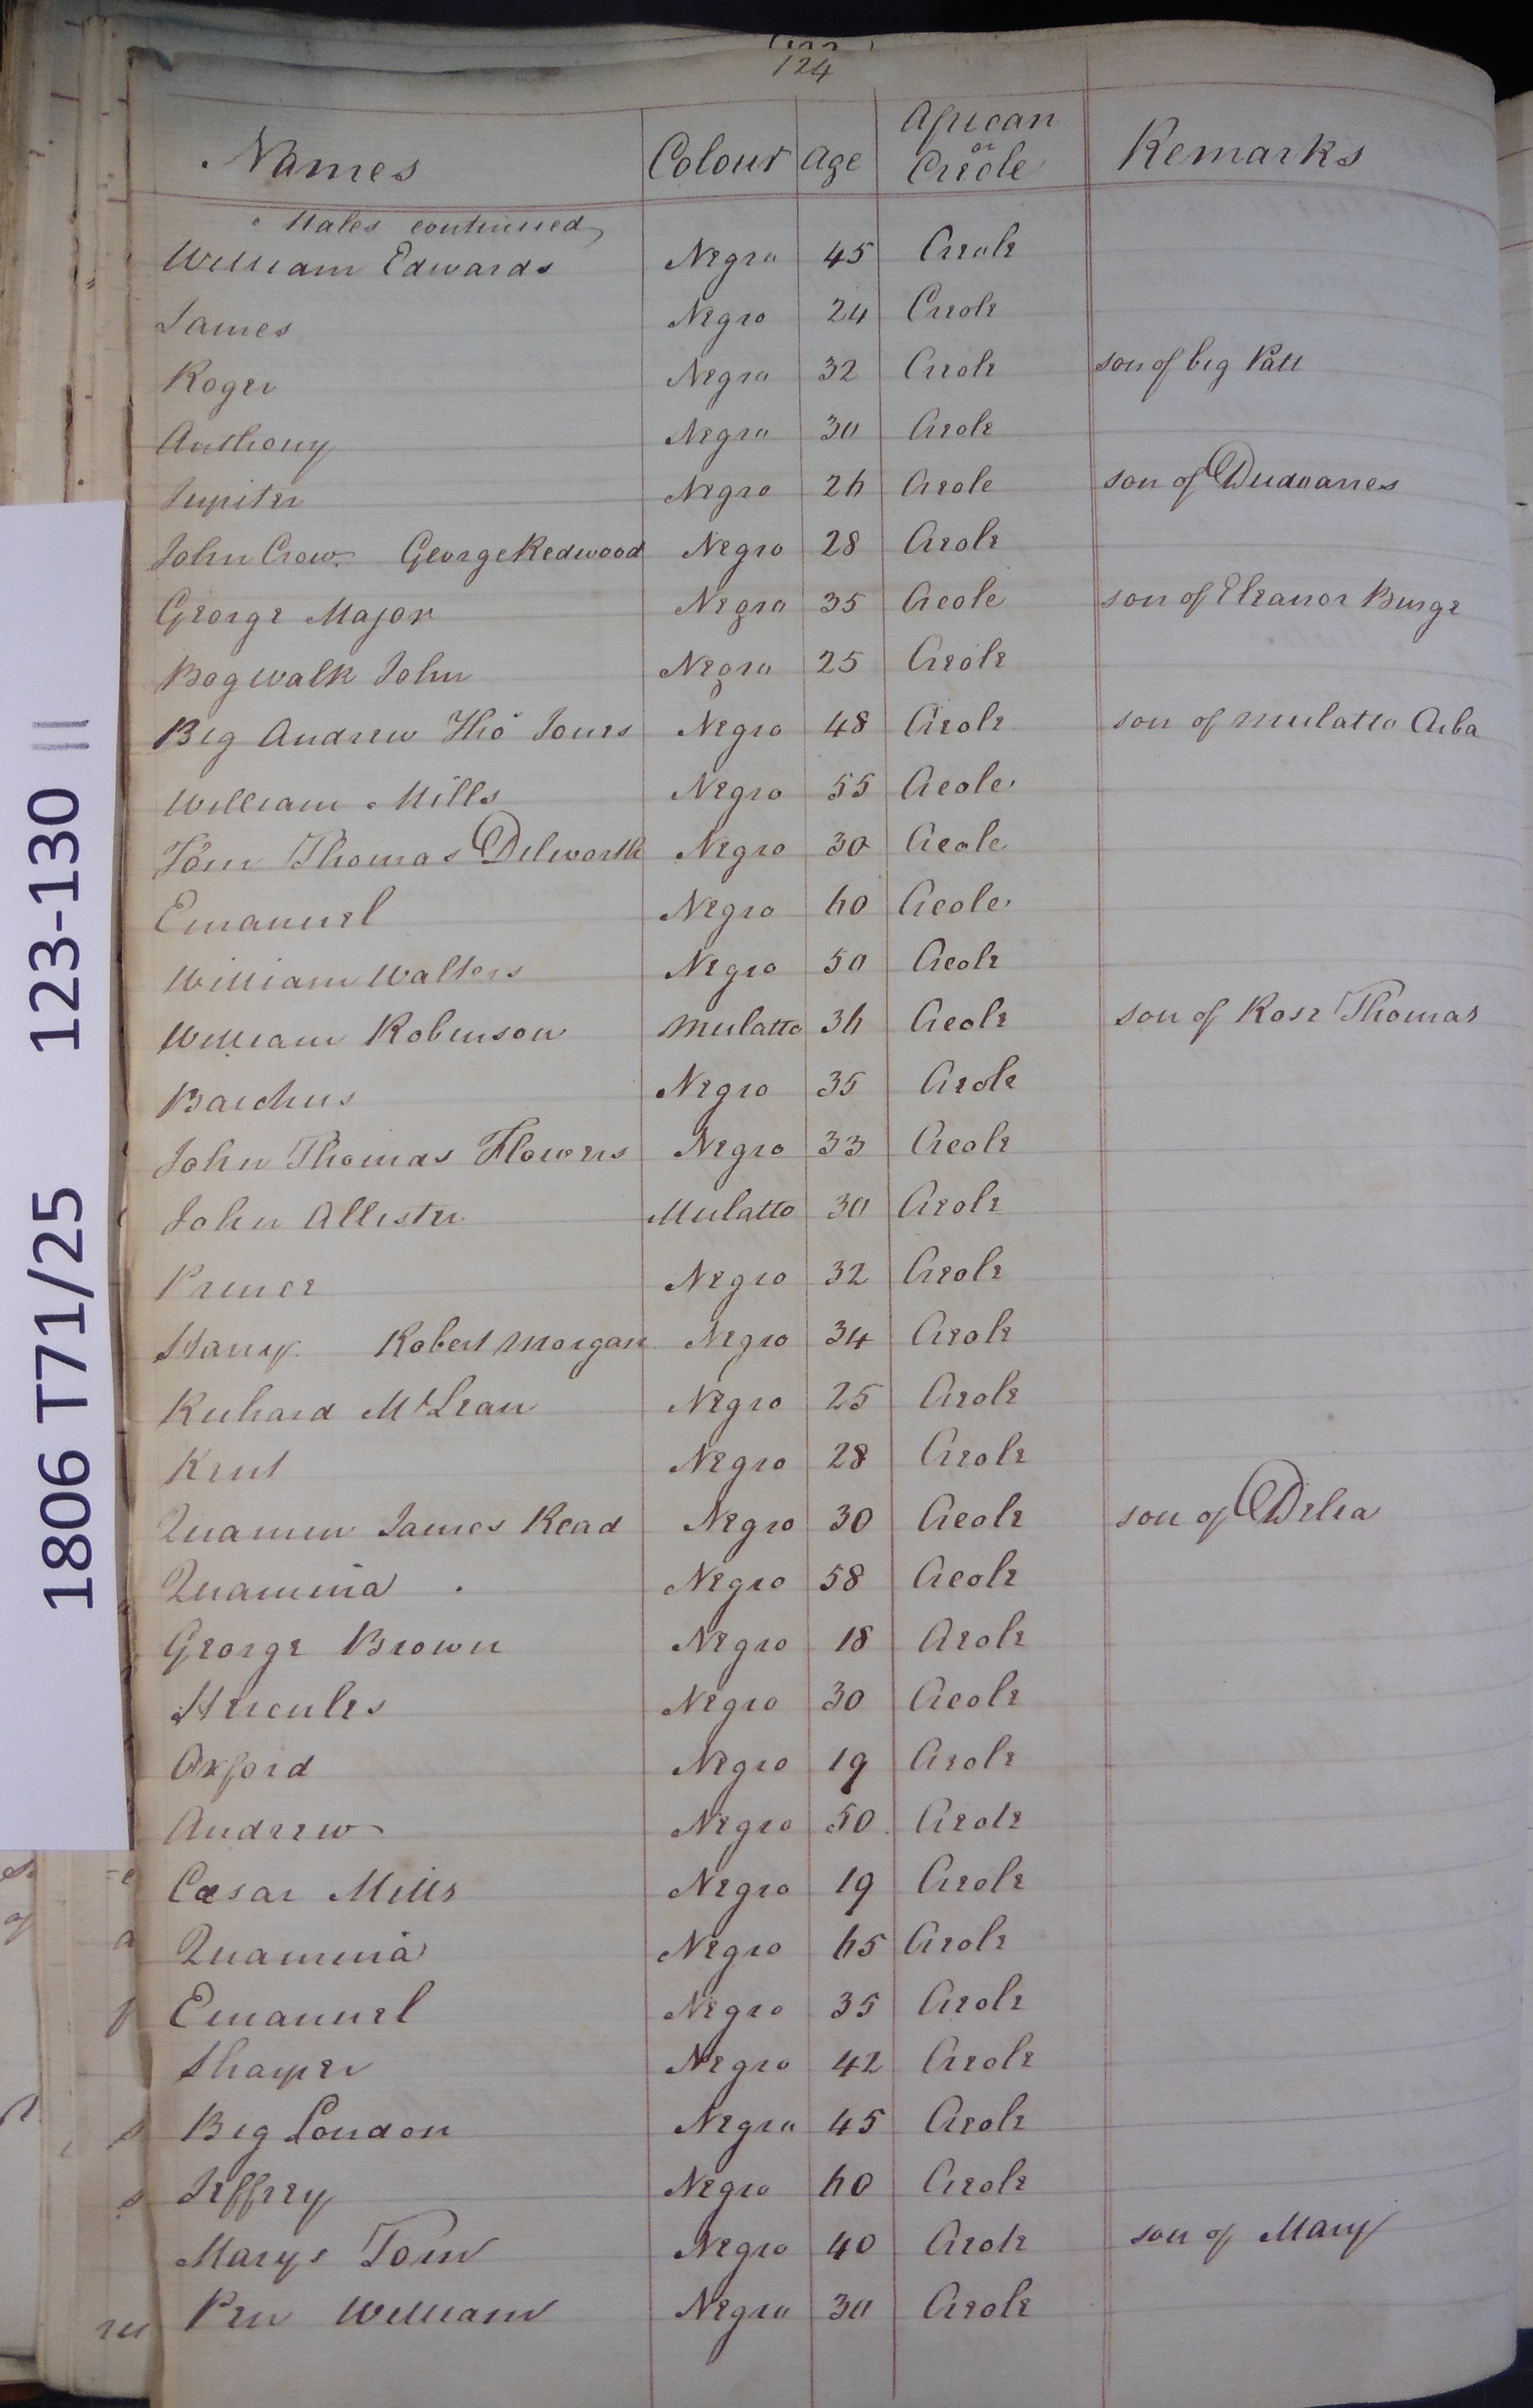 124
Names Colour Age African or Creole Remarks
Males continued
William Edwards Negro 45 Creole
James Negro 24 Creole
Roger Negro 32 Creole son of big Patt
Anthony Negro 30 Creole
Jupiter Negro 26 Creole son of
John Crow George Redwood Negro 28 Creole
George Major Negro 35 Creole son of Eleanor Burge
Bogwalk John Negro 25 Creole
Big Andrew Tho Jones Negro 48 Creole son of mulatto
William Mills Negro 55 Creole
Tom Thomas Dilworth Negro 30 Creole
Emanuel Negro 60 Creole
William Walters Negro 50 Creole
William Robinson Mulatto 36 Creole son of Rose Thomas
Bacchus Negro 35 Creole
John Thomas Flowers Negro 33 Creole
John Allister Mulatto 30 Creole
Prince Negro 32 Creole
Harry Robert Morgan Negro 34 Creole
Richard McLean Negro 25 Creole
Kent Negro 28 Creole
Quamin James Read Negro 30 Creole son of Delia
Quamina Negro 58 Creole
George Brown Negro 18 Creole
Hercules Negro 30 Creole
Oxford Negro 19 Creole
Andrew Negro 50 Creole
Cæsar Mills Negro 19 Creole
Quamina Negro 65 Creole
Emanuel Negro 35 Creole
Sharper Negro 42 Creole
Big London Negro 45 Creole
Jeffrey Negro 60 Creole
Marys Tom Negro 40 Creole son of Mary
Pen William Negro 30 Creole
1806 T71/25 123-130 II